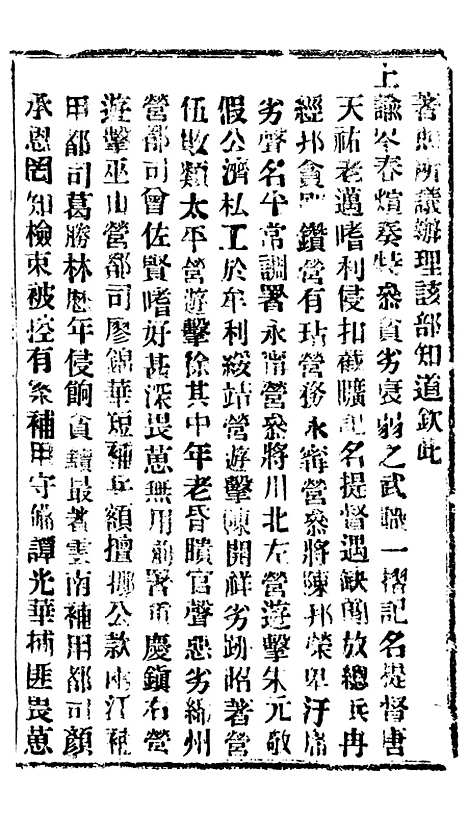 著照所議辦理該部知道欽此
上諭岑春煊奏特參貪劣衰弱之武職一摺記名提督唐
天祐老邁嗜利侵扣截曠記名提督遇缺簡放總兵冉
經邦貪鄙鑽營有玷營務永甯營參將陳邦榮卑汙庸
劣聲名平常調署永甯營參將川北左營遊擊朱元敬
假公濟私工於牟利綏靖營遊擊陳開祥劣跡昭著營
伍敗類太平營遊擊徐其中年老昏瞶官聲惡劣綿州
營都司曾佐賢嗜好甚深畏葸無用前署重慶鎮右營
遊擊巫山營都司廖錦華短補兵額擅挪公款兩江補
用都司葛勝林歷年侵餉貪黷最著雲南補用都司顏
承恩罔知檢束被控有案補用守備譚光華捕匪畏葸